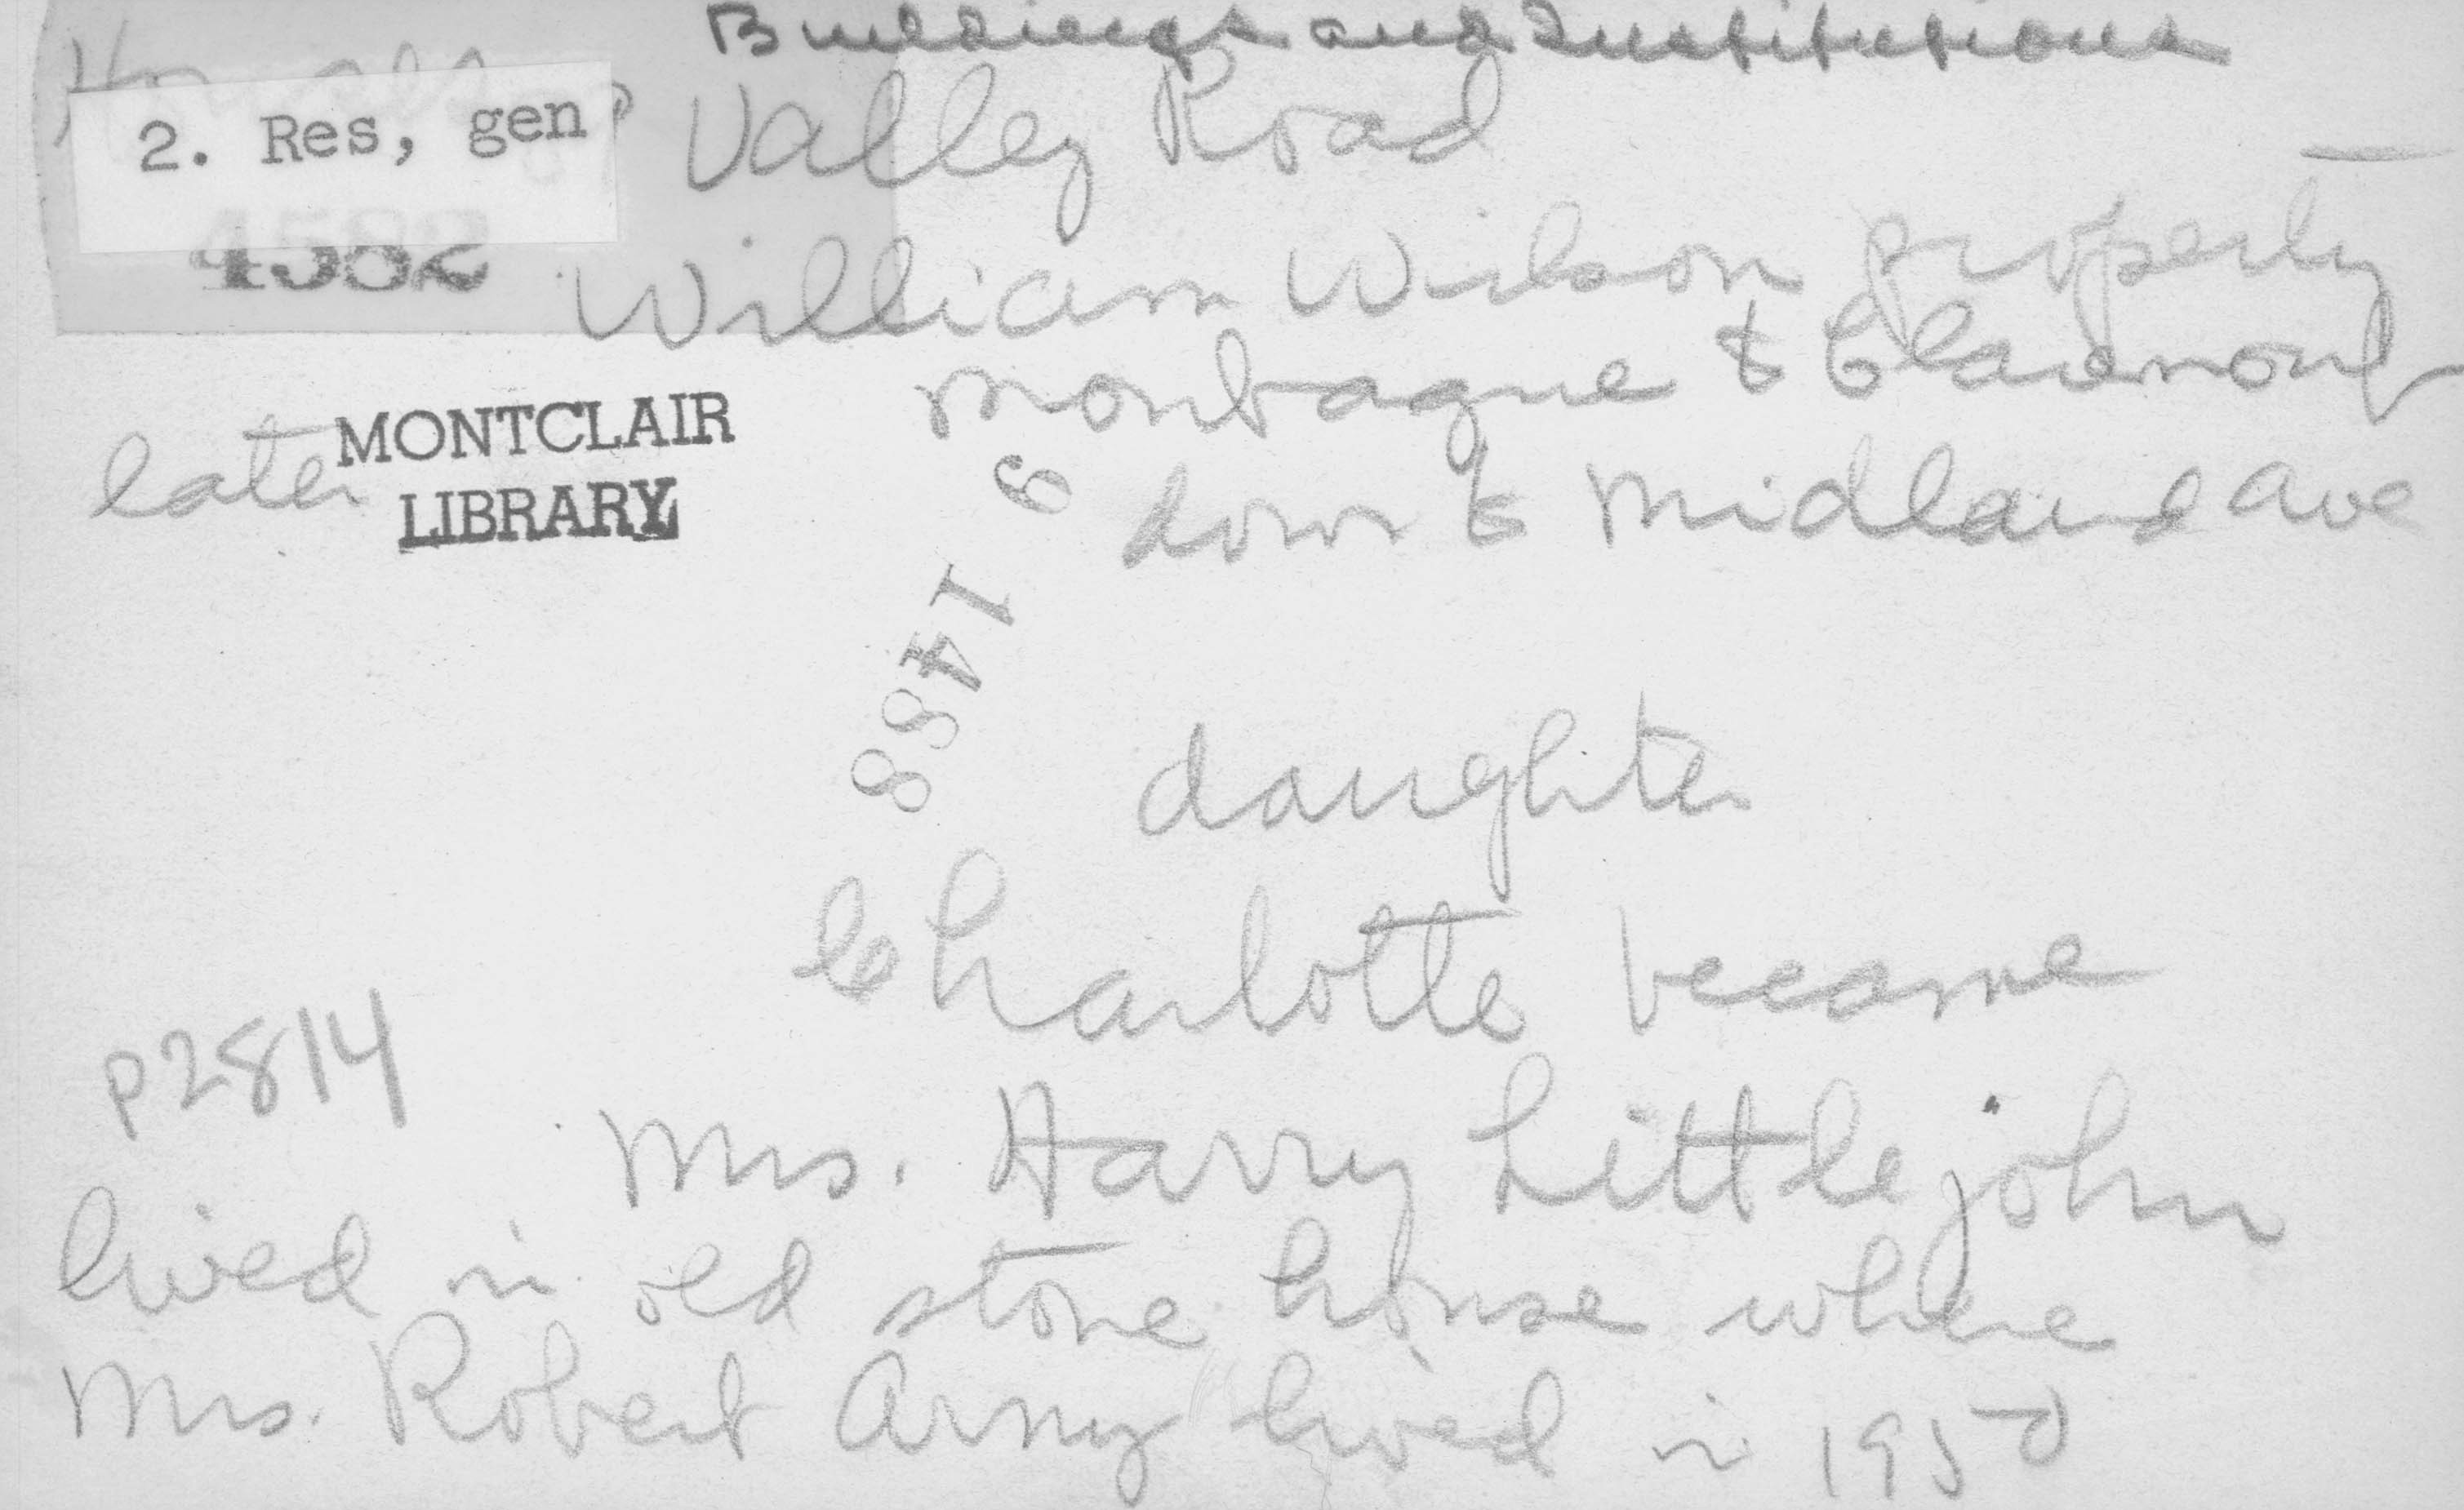 Buildings and Institutions
2. Res, gen
Valley Road
4582
William Wilson property
Montague to Claremont
later
MONTCLAIR
LIBRARY
down to Midland Ave
9 1488
daughter
Charlotte became
P2814
Mrs. Harry Littlejohn
lived in old stone house where
Mrs. Robert Arny lived in 1950